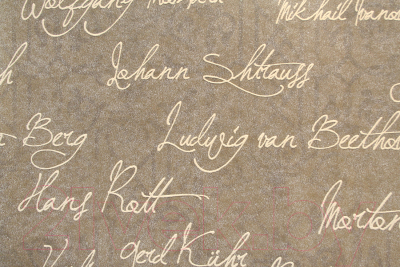 Wolfgang
Mikhail
Johann Shtrauss
Berg Ludwig van Beetho
Hans Rott
Morton
Gerd Kühr